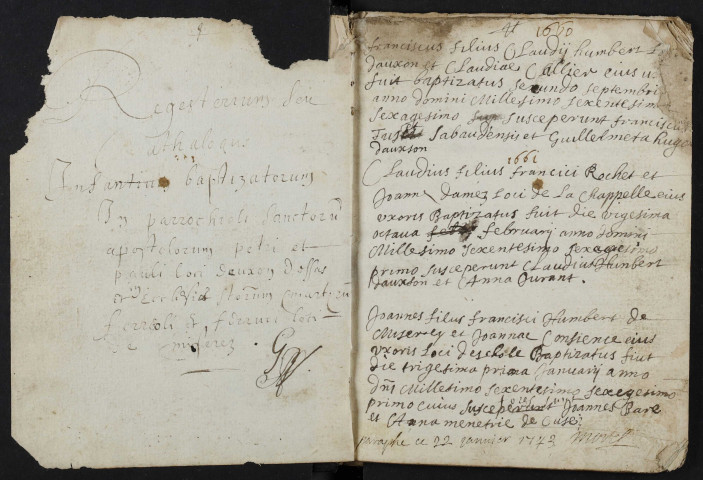 Registrum seu
Cathalogus
Infantium baptizatorum
In parrochiali sanctorum
apostolorum petri et
pauli loci
et in Ecclesia storum martirum
ferreoli et ferrucii loci
de miserez
1660
franciscus filius Claudij humbert
dauxon et Claudiae Callier eius u.
fuit baptizatus secundo septembri
anno domini Millesimo sexentesimo
sexagesimo susceperunt franciscus
Sabaudensis et Guillelmeta hugo
dauxon
1661
Claudius filius francici Rochet et
Joannae damez loci de La Chappelle eius
vxoris Baptizatus fuit die vigesima
octava februarij anno domini
Millesimo sexentesimo sexegesimo
primo susceperunt Claudius Humbert
dauxon et Anna durant.
Joannes filius francisci Humbert de
Miserey et Joannae Constence eius
vxoris loci Baptizatus fuit
die trigesima prima Januarij anno
dni Millesimo sexentesimo sexegesimo
primo cuius susceperunt Joannes Bare
et Anna menetrie de Cusey
paraphe ce 22 janvier 1742